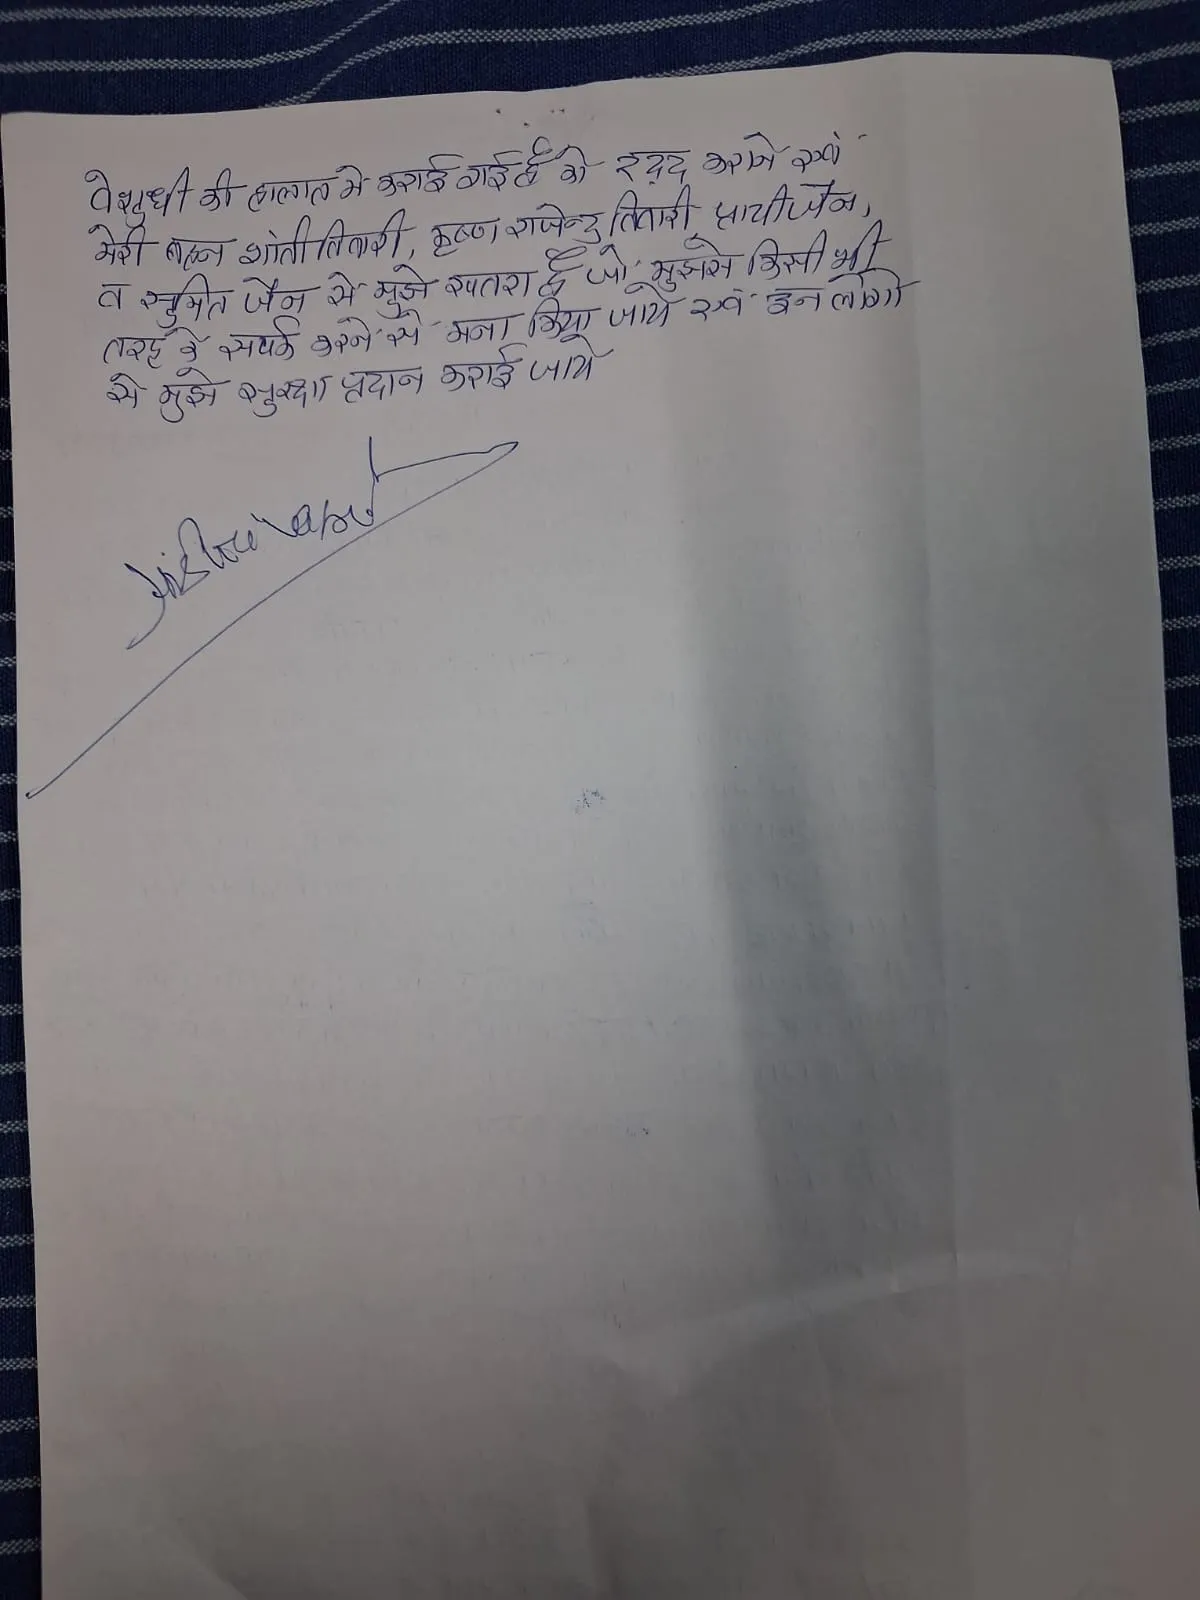 वेशुधी की हालात मे कराई गई है को रद्द कराने एवं
मेरी बहन शांती तिवारी, कृष्ण राजेन्द्र तिवारी, प्राची जैन,
व सुमित जैन से मुझे खतरा है जो मुझसे किसी भी
तरह के सपर्क करने से मना किया जाये एवं इन लोगो
से मुझे सुरक्षा प्रदान कराई जाये